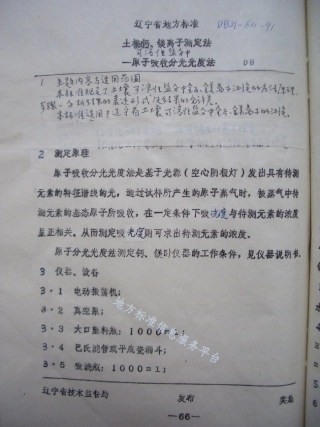 辽宁省地方标准
DB21-611-91
土壤钙、镁离子测定法
可溶性盐分中
—原子吸收分光光度法
DB
1 主题内容与适用范围
本标准规定了土壤可溶性盐分中钙、镁离子测试的方法原理、
步骤、分析结果的表述形式及结果的允许差。
本标准适用于辽宁省土壤可溶性盐分中钙、镁离子的测试。
2 测定原理
原子吸收分光光度法是基于光源(空心阴极灯)发出具有待测
元素的特征谱线的光,通过试样所产生的原子蒸气时,被蒸气中待
测元素的基态原子所吸收,在一定条件下吸光度与待测元素的浓度
呈正相关。从而测定吸光度则可求出待测元素的浓度。
原子分光光度法测定钙、镁时仪器的工作条件,见仪器说明书
3 仪器、设备
3·1 电动振荡机;
3·2 真空泵;
3·3 大口塑料瓶:1000ml;
3·4 巴氏滤管或平底瓷漏斗;
3·5 吸滤瓶:1000ml;
地方标准信息服务平台
辽宁省技术监督局 发布 实施
—66—